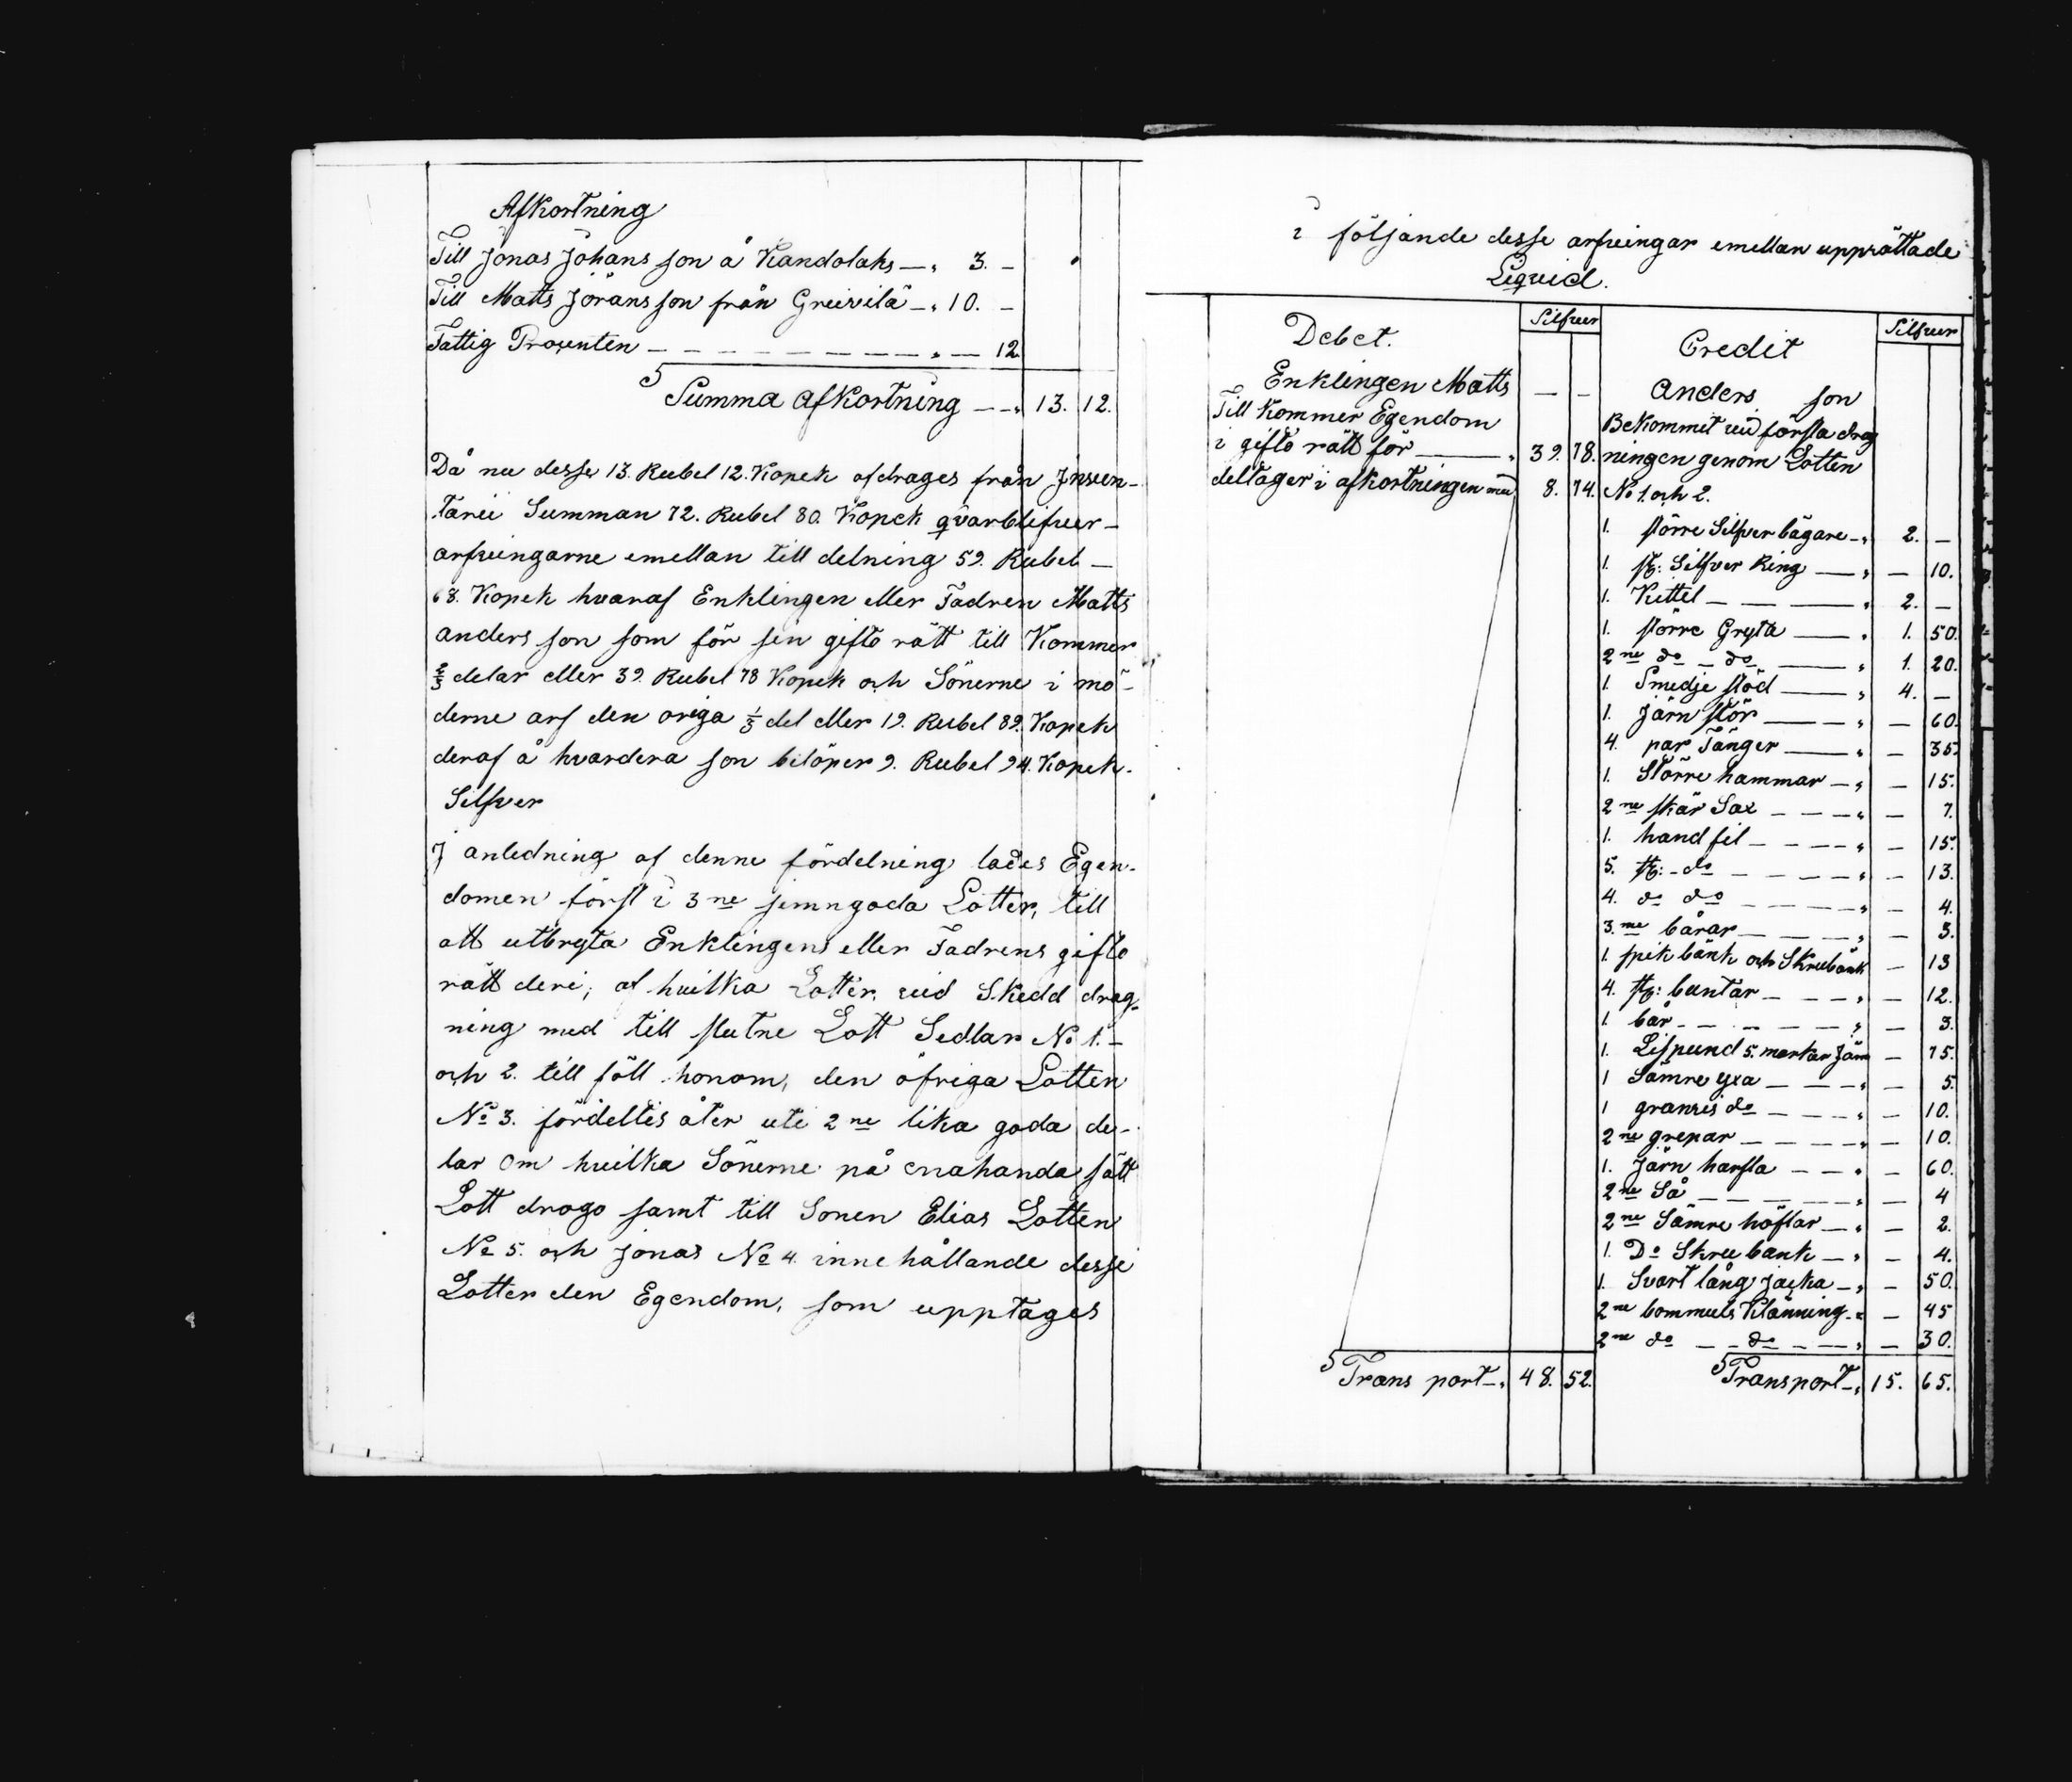 Afkortning
Till Jonas Johans son å Kandolaks — „ 3. –
Till Matts Jörans son från Greivilä – „ 10. –
Fattig Prosenten – – – – – – – – „ — 12.
Summa afkortning – – „ 13. 12.
Då nu desse 13. Rubel 12. Kopek afdrages från Inven-
tarii Summan 72. Rubel 80. Kopek qvarblifver –
arfvingarne emellan till delning 59. Rubel –
68. Kopek hvaraf Enklingen eller Fadren Matts
anders son som för sin gifto rätt till Kommer
2/3 delar eller 39. Rubel 78 Kopek och Sönerne i mö-
derne arf den öriga 1/3 del eller 19. Rubel 89. Kopek
deraf å hvardera son belöper 9. Rubel 94. Kopek.
Silfver
I anledning af denne fördelning lades Egen-
domen först i 3ne jemngoda Lotter, till
att utbryta Enklingens eller Fadrens gifto
rätt deri; af hvilka Lotter, vid Skedd drag-
ning med till slutne Lott Sedlar No 1. –
och 2. till föll honom, den öfriga Lotten
No 3. fördeltes åter uti 2ne lika goda de-
lar om hvilka Sönerne på enahanda sätt
Lott drogo samt till Sonen Elias Lotten
No 5. och Jonas No 4. inne hållande desse
Lotter den Egendom, som upptages
i följande desse arfvingar emellan upprättade
Liqvid.
Debet. Silfver
Enklingen Matts — –
Till Kommer Egendom
i gifto rätt för — „ 39. 78.
deltager i afkortningen med 8. 74.
Trans port – „ 48. 52.
Credit Silfver
Anders son
Bekommit vid första drag
ningen genom Lotten
No 1. och 2.
1. större Silfver bägare – „ 2. –
1. st: Silfver Ring — „ – 10.
1. Kittel – – — „ 2. –
1. större Gryta — „ 1. 50.
2ne do – do — „ 1. 20.
1. Smedje städ — „ 4. –
1. Järn stör — „ – 60.
4. par Tänger — „ – 35.
1. Större hammar – „ – 15.
2ne skär Sax – – – „ – 7.
1. hand fil – – – – „ – 15.
5. st: – do – – – – – „ – 13.
4. do do – – – – „ – 4.
3.ne bårar – – – „ – 3.
1. spik bänk och Skrubänk – 13
4. st: buntar – – – „ – 12.
1. bår – – – – – „ – 3.
1. Lispund 5. marker Järn – 75.
1 Sämre yxa – – – „ – 5.
1 do – – – – „ – 10.
2ne grepar – – – – „ – 10.
1. Järn harfla – – „ – 60.
2ne Så – – – – – „ – 4
2ne Sämre höflar – „ – 2.
1. Do Skru bank – „ – 4.
1. Svart lång jacka – „ – 50.
2ne bommuls Klänning – „ – 45
2ne do – – do – – „ – 30.
Transport – „ 15. 65.